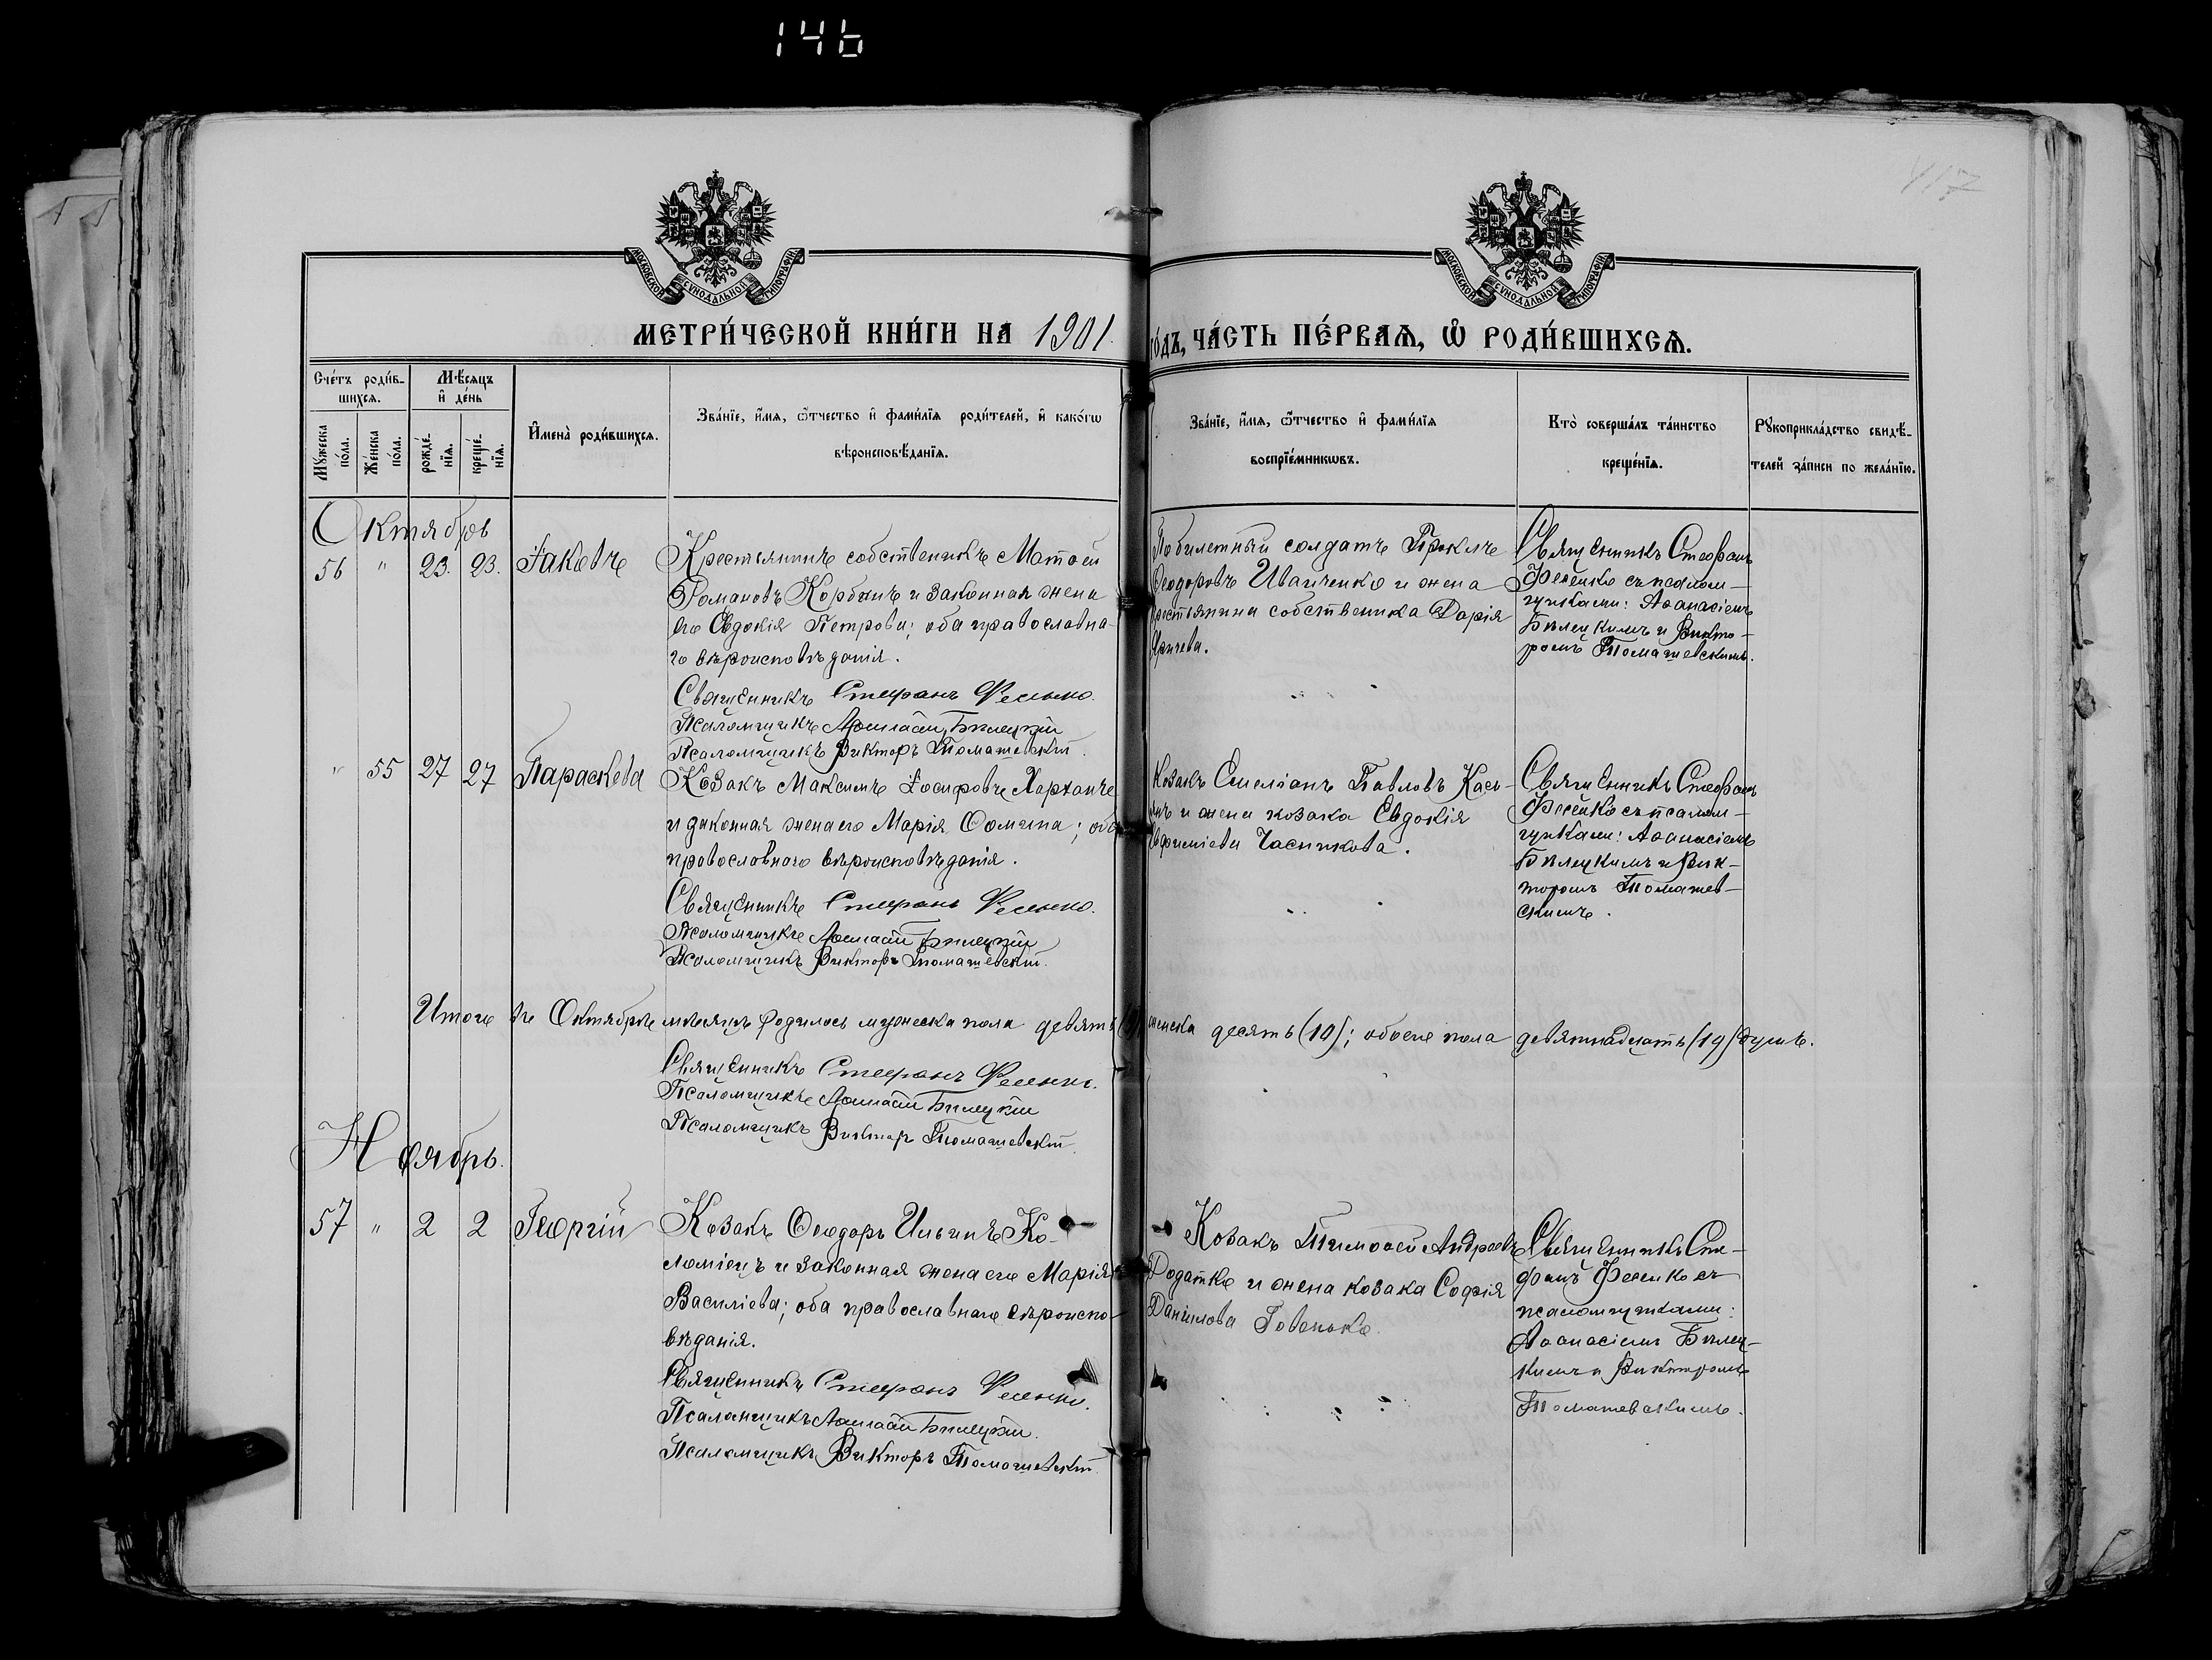 146
117
МОСКОВСКОЙ СѴНОДАЛЬНОЙ ТИПОГРАФІИ
МОСКОВСКОЙ СѴНОДАЛЬНОЙ ТИПОГРАФІИ
МЕТРИ́ЧЕСКОЙ КНИ́ГИ НА 1901
го́дъ, ЧА́СТЬ ПЕ́РВАѦ, Ѡ҆ РОДИ́ВШИХСѦ.
Сче́тъ роди́в-
шихсѧ.
Мꙋ́жеска
по́ла.
Же́нска
по́ла.
Мѣ́сѧцъ
и҆ де́нь
рожде́-
нїѧ.
креще́-
нїѧ.
И҆мена̀ роди́вшихсѧ.
Зва́нїе, и҆́мѧ, ѻ҆́тчество и҆ фами́лїѧ роди́телей, и҆ како́гѡ
вѣроисповѣ́данїѧ.
Зва́нїе, и҆́мѧ, ѻ҆́тчество и҆ фами́лїѧ
воспрїе́мникѡвъ.
Кто̀ соверша́лъ та́инство
креще́нїѧ.
Рꙋкоприкла́дство свидѣ́-
телей за́писи по жела́нїю.
Октябрь
56 " 23. 23. Іаковъ
Крестьянинъ собственикъ Матѳей
Романовъ Корбинъ и законная жена
его Евдокія Петрова; оба православна-
го вѣроисповѣданія.
Священникъ Стефанъ Фесенко.
Псаломщикъ Аѳанасій Билецкій
Псаломщикъ Викторъ Томашевскій.
Побилетный солдатъ Проклъ
Ѳеодоровъ Иванченко и жена
крестьянина собственика Дарія
Священникъ Стефанъ
Фесенко съ псалом-
щиками: Аѳанасіемъ
Билецкимъ и Викто-
ромъ Томашевскимъ.
" 55 27 27 Параскева
Козакъ Максимъ Іосифовъ Харханъ
и законная жена его Марія Ѳомина; оба
православного вѣроисповѣданія.
Священникъ Стефанъ Фесенко.
Псаломщикъ Аѳанасій Билецкій
Псаломщикъ Викторъ Томашевскій.
Козакъ Емеліанъ Павловъ Кась-
янъ и жена козака Евдокія
Евфиміева Часникова.
Священникъ Стефанъ
Фесенко съ псалом-
щиками: Аѳанасіемъ
Билецкимъ и Вик-
торомъ Томашев-
скимъ.
Итого въ Октябрѣ мѣсяцѣ родилось мужеска пола девять (9) женска десять (10); обоего пола девятнадцать (19) душъ.
Священникъ Стефанъ Фесенко.
Псаломщикъ Аѳанасій Билецкій
Псаломщикъ Викторъ Томашевскій.
Ноябрь.
57 " 2 2 Георгій
Козакъ Ѳеодоръ Ильинъ Ко-
ломіецъ и законная жена его Марія
Василіева; оба православнаго вѣроиспо-
вѣданія.
Священникъ Стефанъ Фесенко.
Псаломщикъ Аѳанасій Билецкій.
Псаломщикъ Викторъ Томашевскій.
Козакъ Тимоѳей Андреевъ
Додатко и жена козака Софія
Даніилова Говенько.
Священникъ Сте-
фанъ Фесенко съ
псаломщиками:
Аѳанасіемъ Билец-
кимъ и Викторомъ
Томашевскимъ.